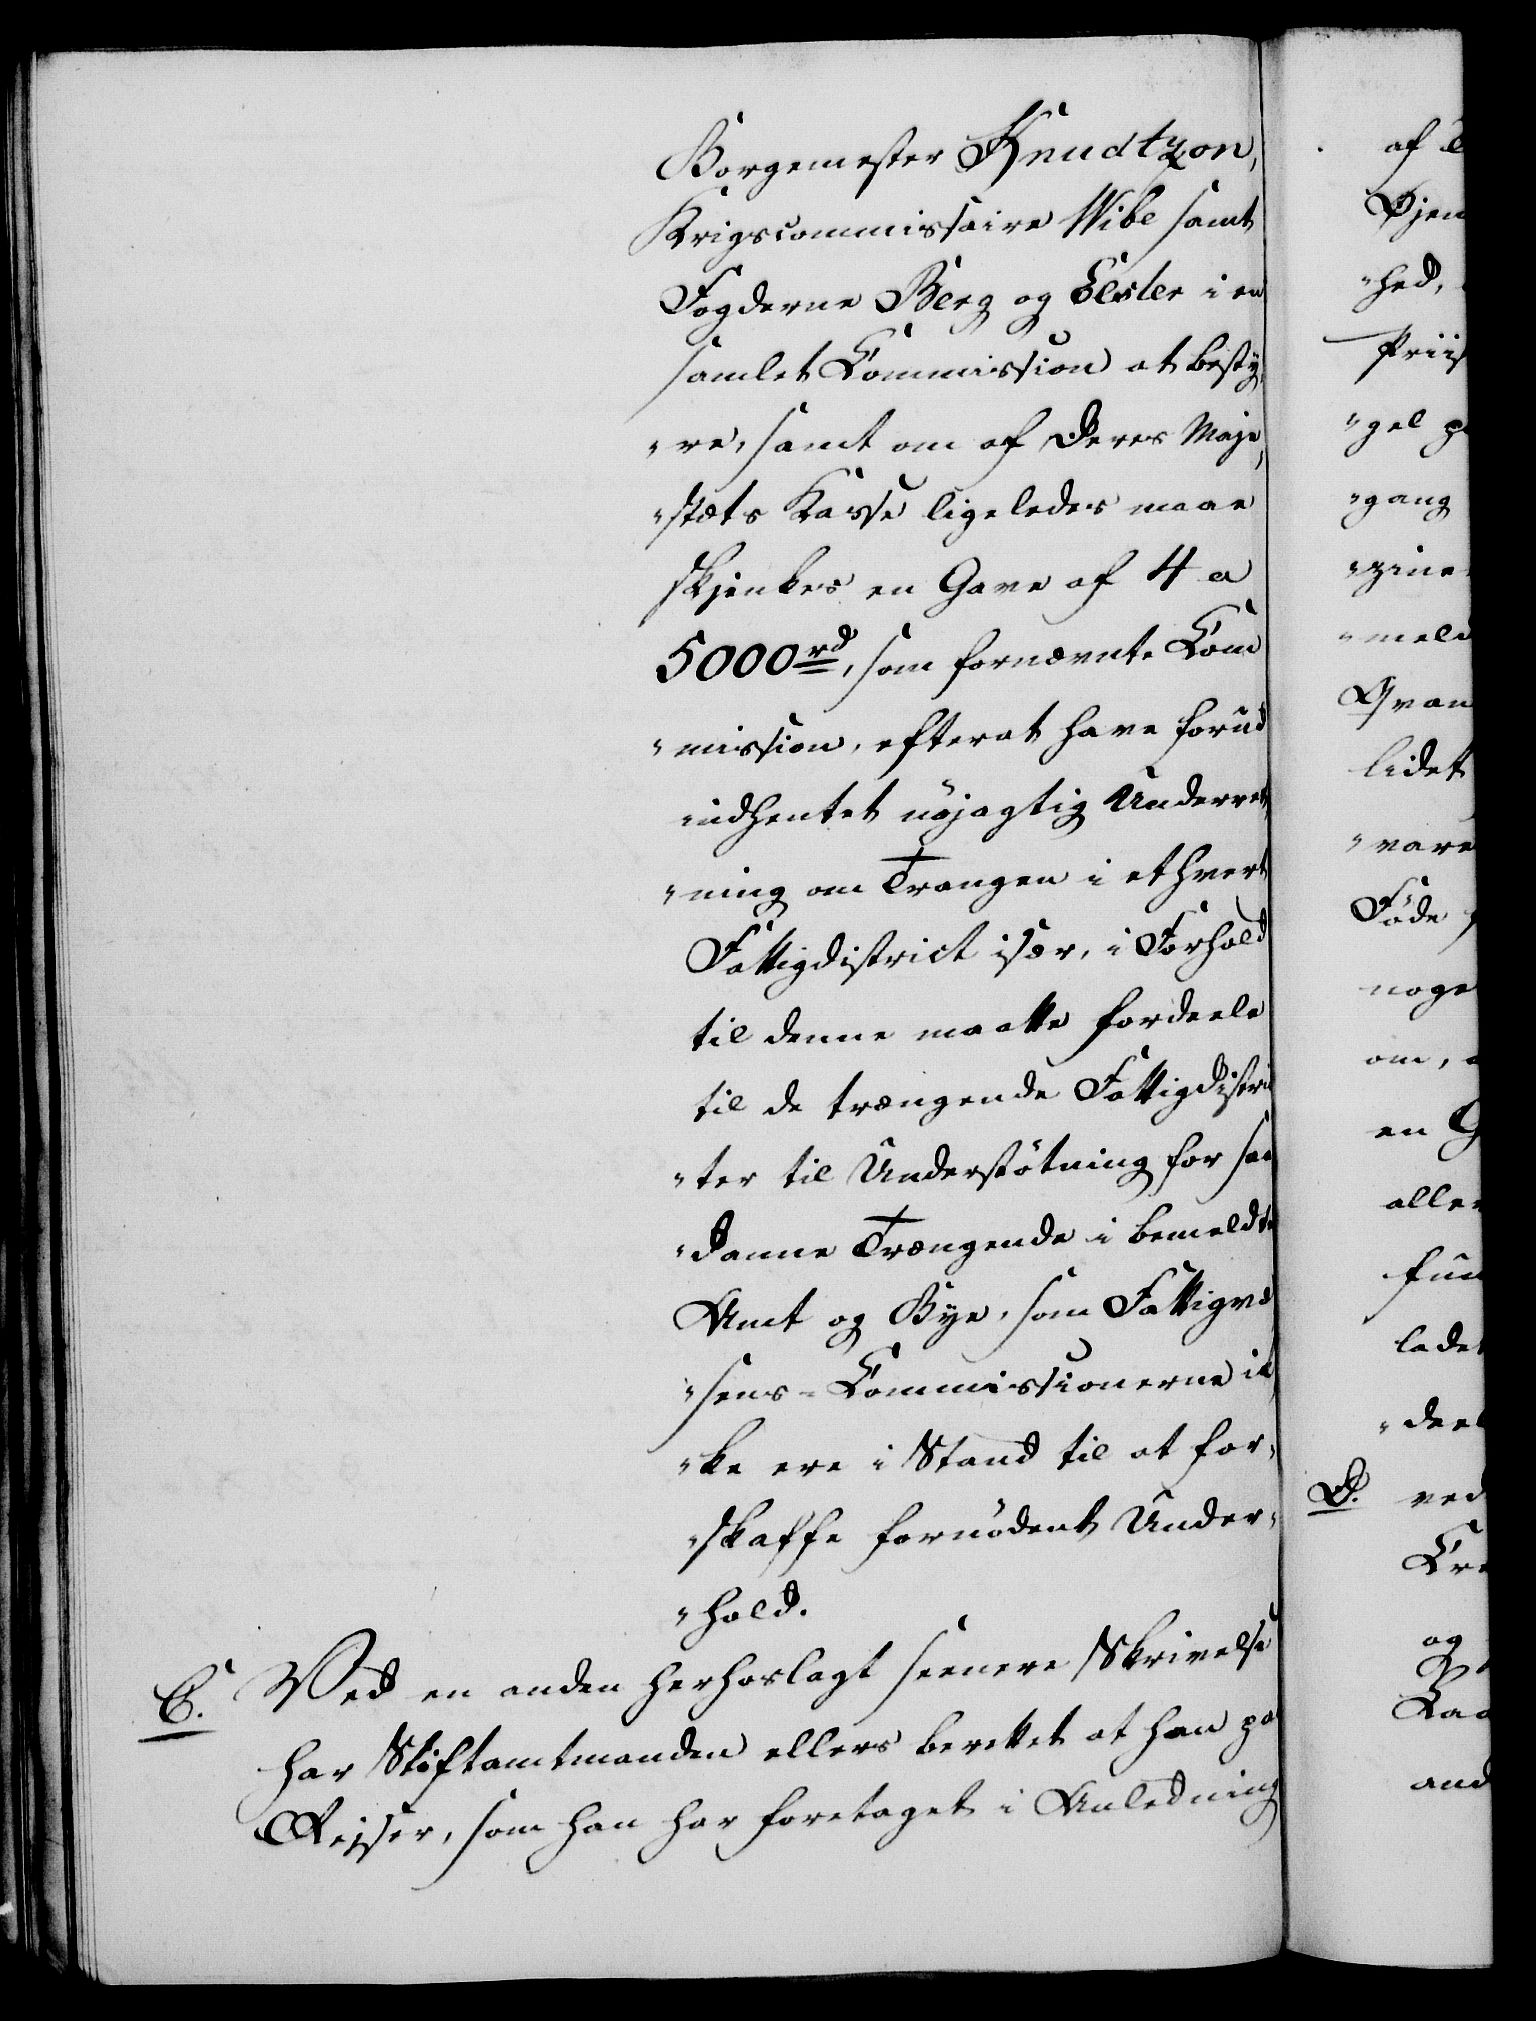 Borgemester Knudtzon,
Krigscommissaire Wibe samt
Fogderne Berg og Elster i en
samlet Commission at besty,
"re, samt om af Deres Maje,
"stæts Kasse ligeledes maae
skjenkes en Gave af 4 a
5000rd, som fornævnte Com
"mission, efterat have forud
indhentet nøjagtig Underret,
"ning om Trangen i ethvert
Fattigdistrict især, i Forhold
til denne maatte fordeele
til de trængende Fattigdistric
"ter til Understøtning for saa
"danne Trængende i bemeldte
Amt og Bye, som Fattigvæ
"sens-Commissionerne ik
"ke ere i Stand til at for-
"skaffe fornødent Under-
"hold.
C. Ved en anden herhoslagt seenere Skrivelse
har Stiftamtmanden ellers berettet at han paa
Rejser, som han har foretaget i Anledning
af
Øjen
"hed,
Priis
"gel
"gang
"zine
"mele
Qvan
lidet
"vare
Føde
noge
om,
en
aller
fun
ladet
"deel
D. ved
og
and